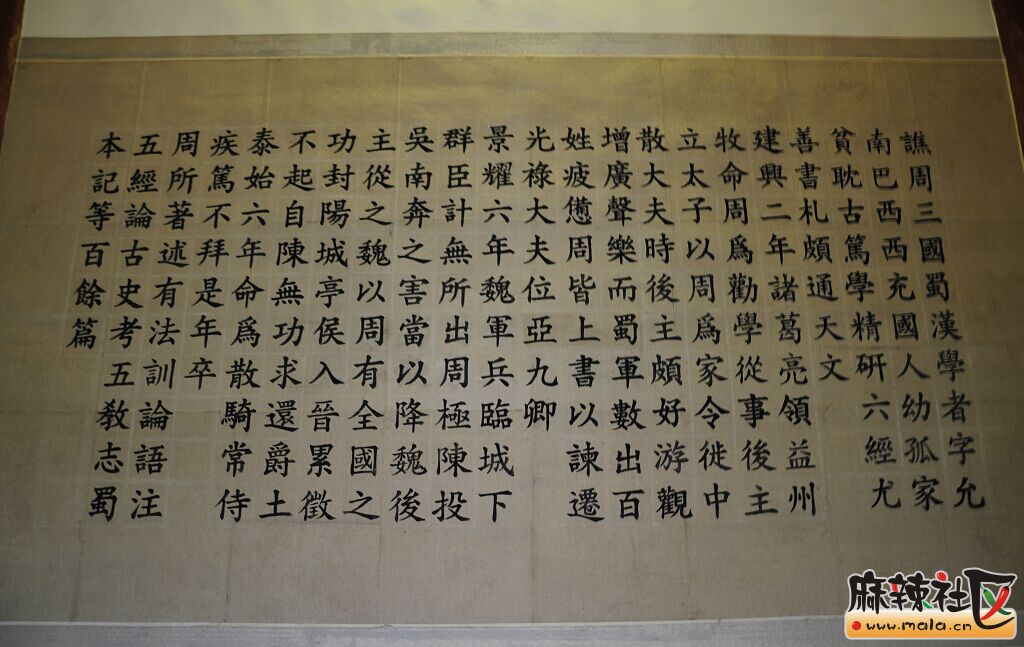 譙周三國蜀漢學者字允
南巴西西充國人幼孤家
貧耽古篤學精硏六經尤
善書札頗通天文
建興二年諸葛亮領益州
牧命周爲勸學從事後主
立太子以周爲家令徙中
散大夫時後主頗好游觀
增廣聲樂而蜀軍數出百
姓疲憊周皆上書以諫遷
光祿大夫位亞九卿
景耀六年魏軍兵臨城下
群臣計無所出周極陳投
吳南奔之害當以降魏後
主從之魏以周有全國之
功封陽城亭侯入晉累徵
不起自陳無功求還爵土
泰始六年命爲散騎常侍
疾篤不拜是年卒
周所著述有法訓論語注
五經論古史考五敎志蜀
本記等百餘篇
麻辣社区
www.mala.cn